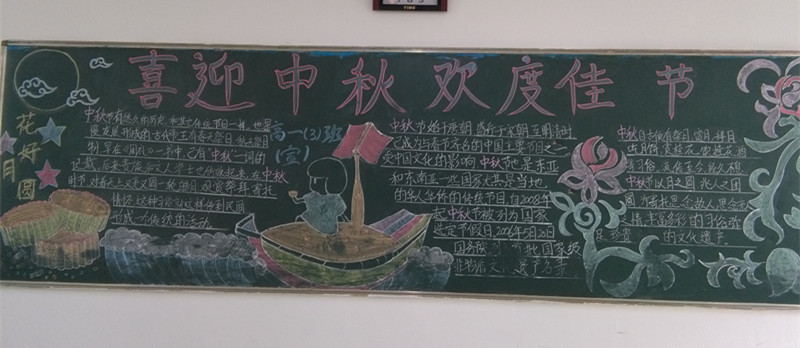 喜迎中秋欢度佳节
花好
月圆
高一(3)班
(宣)
中秋节有悠久的历史,和其它传统节日一样,也是
慢慢发展形成的,古代帝王有春天祭日,秋天祭月
制,早在《周礼》一书中,已有"中秋"一词的
记载。后来贵族和文人学士也仿效起来,在中秋
时节,对着天上又亮又圆一轮皓月,观赏祭拜,寄托
情怀,这种习俗就这样传到民间
形成一个传统的活动。
中秋节始于唐朝,盛行于宋朝,至明清时,
已成为与春节齐名的中国主要节日之一
受中国文化的影响,中秋节也是东亚
和东南亚一些国家尤其是当地
的华人华侨的传统节日。自2008年
起中秋节被列为国家
法定节假日。2006年5月20日
国务院
非物质文化遗产名录
中秋自古便有祭月、赏月、拜月
中秋节以月之圆兆人之团
圆,为寄托思念故人,思念
情,丰富多彩的习俗,弥
足珍贵的文化遗产。